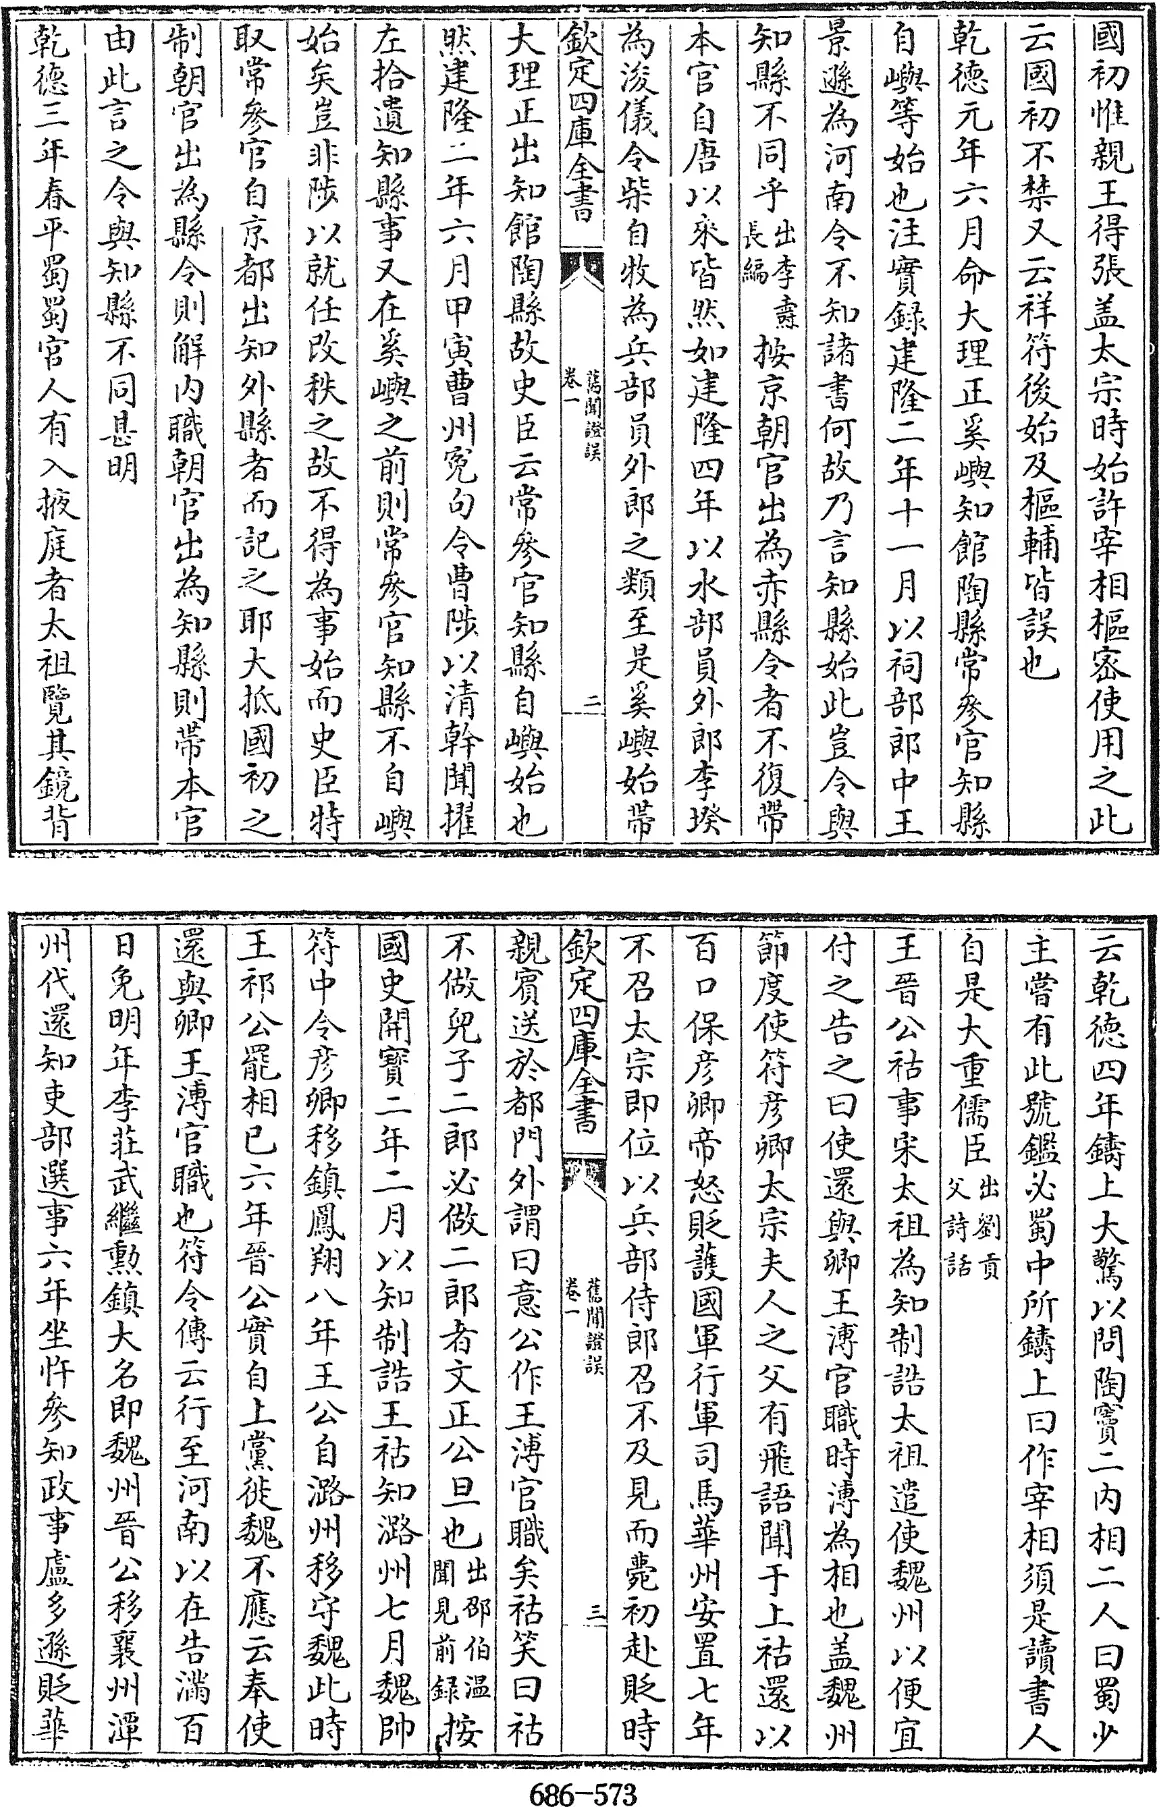 國初惟親王得張盖太宗時始許宰相樞宻使用之此
云國初不禁又云祥符後始及樞輔皆誤也
乾德元年六月命大理正奚嶼知館陶縣常參官知縣
自嶼等始也注實録建隆二年十一月以祠部郎中王
景遜為河南令不知諸書何故乃言知縣始此豈令與
知縣不同乎出李燾長編按京朝官出為赤縣令者不復帶
本官自唐以來皆然如建隆四年以水部員外郎李㙺
為浚儀令柴自牧為兵部員外郎之類至是奚嶼始帶
欽定四庫全書 舊聞證誤 卷一 二
大理正出知館陶縣故史臣云常參官知縣自嶼始也
然建隆二年六月甲寅曹州寃句令曹陟以清幹聞擢
左拾遺知縣事又在奚嶼之前則常參官知縣不自嶼
始矣豈非陟以就任改秩之故不得為事始而史臣特
取常參官自京都出知外縣者而記之耶大抵國初之
制朝官出為縣令則解内職朝官出為知縣則帶本官
由此言之令與知縣不同甚明
乾德三年春平蜀蜀宫人有入掖庭者太祖覽其鏡背
云乾德四年鑄上大驚以問陶竇二内相二人曰蜀少
主嘗有此號鑑必蜀中所鑄上曰作宰相須是讀書人
自是大重儒臣出劉貢父詩話
王晉公祜事宋太祖為知制誥太祖遣使魏州以便宜
付之告之曰使還與卿王溥官職時溥為相也盖魏州
節度使符彦卿太宗夫人之父有飛語聞于上祜還以
百口保彦卿帝怒貶䕶國軍行軍司馬華州安置七年
不召太宗即位以兵部侍郎召不及見而薨初赴貶時
欽定四庫全書 舊聞證誤 卷一 三
親賓送於都門外謂曰意公作王溥官職矣祜笑曰祜
不做兒子二郎必做二郎者文正公旦也出邵伯温聞見前録按
國史開寳二年二月以知制誥王祜知潞州七月魏帥
符中令彦卿移鎮鳳翔八年王公自潞州移守魏此時
王祁公罷相已六年晉公實自上黨徙魏不應云奉使
還與卿王溥官職也符令傳云行至河南以在告滿百
日免明年李莊武繼勲鎮大名即魏州晉公移襄州潭
州代還知吏部選事六年坐忤參知政事盧多遜貶華
686—573